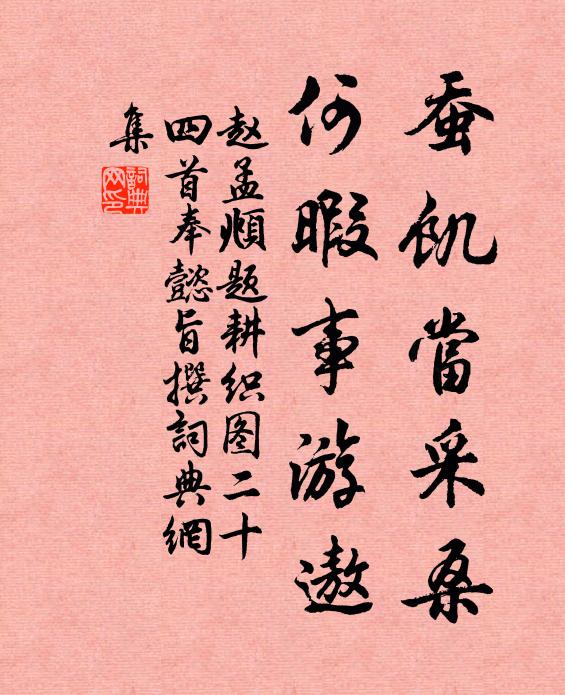 蚕飢當采桑
何暇事游遨
赵孟頫题耕织图二十
四首奉懿旨撰詞典網
集
詞典
网印